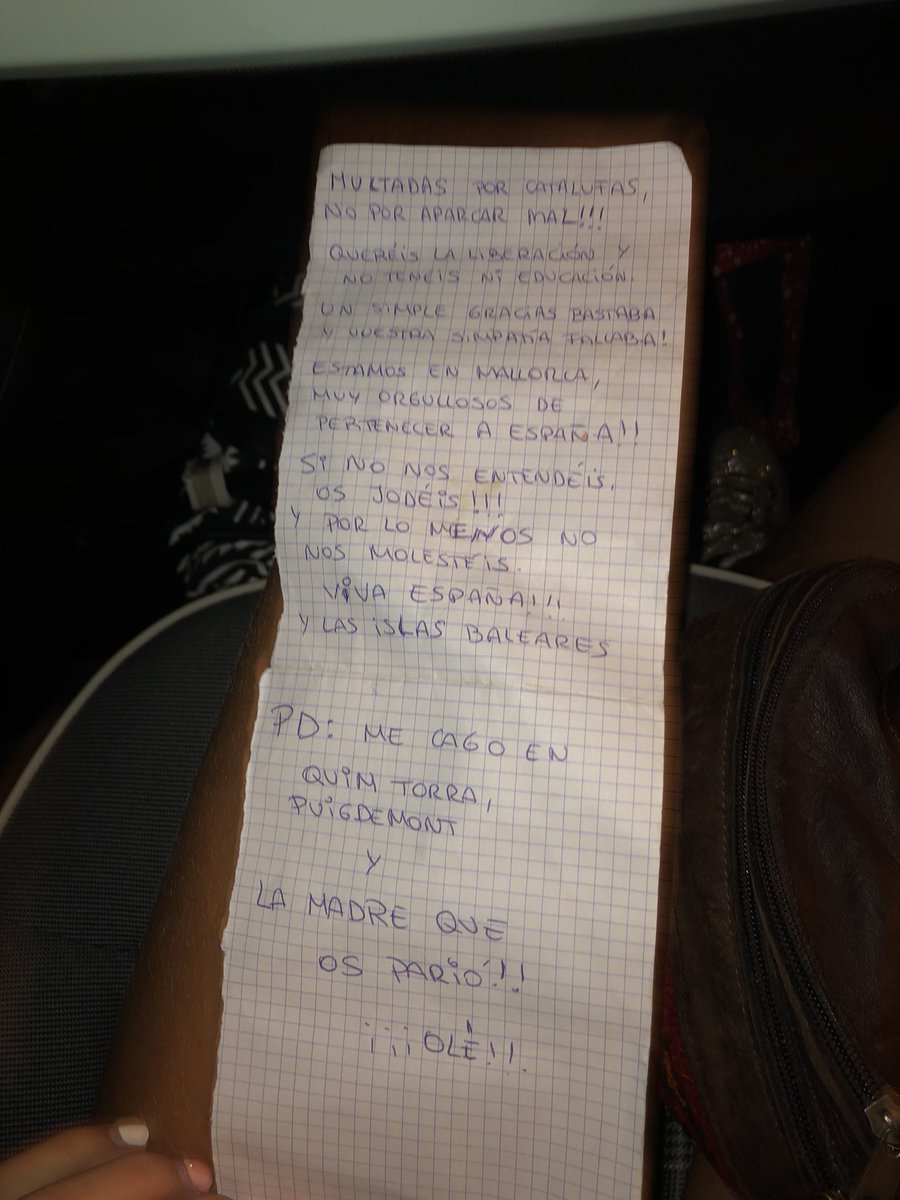 MULTADAS POR CATALUTAS,
NO POR APARCAR MAL!!!
QUERÉIS LA LIBERACIÓN Y
NO TENEIS NI EDUCACIÓN.
UN SIMPLE GRACIAS BASTABA
Y VUESTRA SIMPATÍA FALLABA!
ESTAMOS EN MALLORCA,
MUY ORGULLOSOS DE
PERTENECER A ESPAÑA!!
SI NO NOS ENTENDÉIS,
OS JODÉIS!!!
Y POR LO MENOS NO
NOS MOLESTÉIS.
VIVA ESPAÑA!!!
Y LAS ISLAS BALEARES
PD: ME CAGO EN
QUIM TORRA,
PUIGDEMONT
Y
LA MADRE QUE
OS PARIÓ!!
¡¡¡OLÉ!!